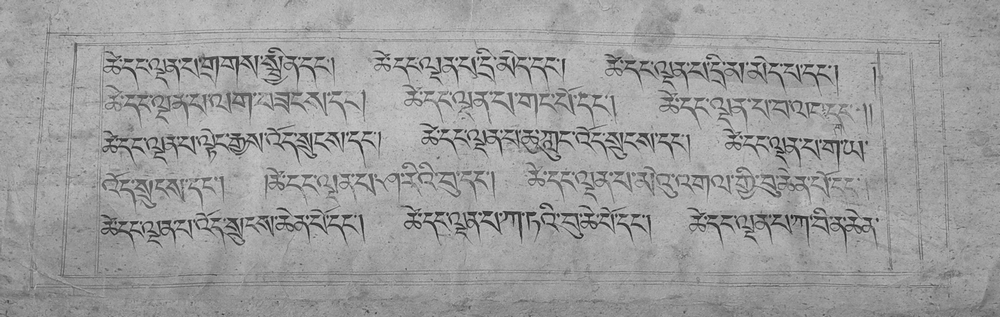 ཚེ་དང་ལྡན་པ་གྲགས་སྦྱིན་དང་། ཚེ་དང་ལྡན་པ་དྲི་མེད་དང་། ཚེ་དང་ལྡན་པ་དྲི་མ་མེད་པ་དང་། །
ཚེ་དང་ལྡན་པ་ལག་བཟངས་དང་། ཚེ་དང་ལྡན་པ་གང་པོ་དང་། ཚེ་དང་ལྡན་པ་བ་ལང་བདག་དང་།།
ཚེ་དང་ལྡན་པ་ལྟེང་རྒྱས་འོད་སྲུངས་དང་། ཚེ་དང་ལྡན་པ་ཆུ་ཀླུང་འོད་སྲུངས་དང་། ཚེ་དང་ལྡན་པ་ག་ཡཱ་
འོད་སྲུངས་དང་། །ཚེ་དང་ལྡན་པ་ཤ་རིའི་བུ་དང་། ཚེ་དང་ལྡན་པ་མོའུ་འགལ་གྱི་བུ་ཆེན་པོ་དང་།
ཚེ་དང་ལྡན་པ་འོད་སྲུངས་ཆེན་པོ་དང་། ཚེ་དང་ལྡན་པ་ཀ་ཏའི་བུ་ཆེ་པོ་དང་། ཚེ་དང་ལྡན་པ་ཀ་པིན་ཆེན་